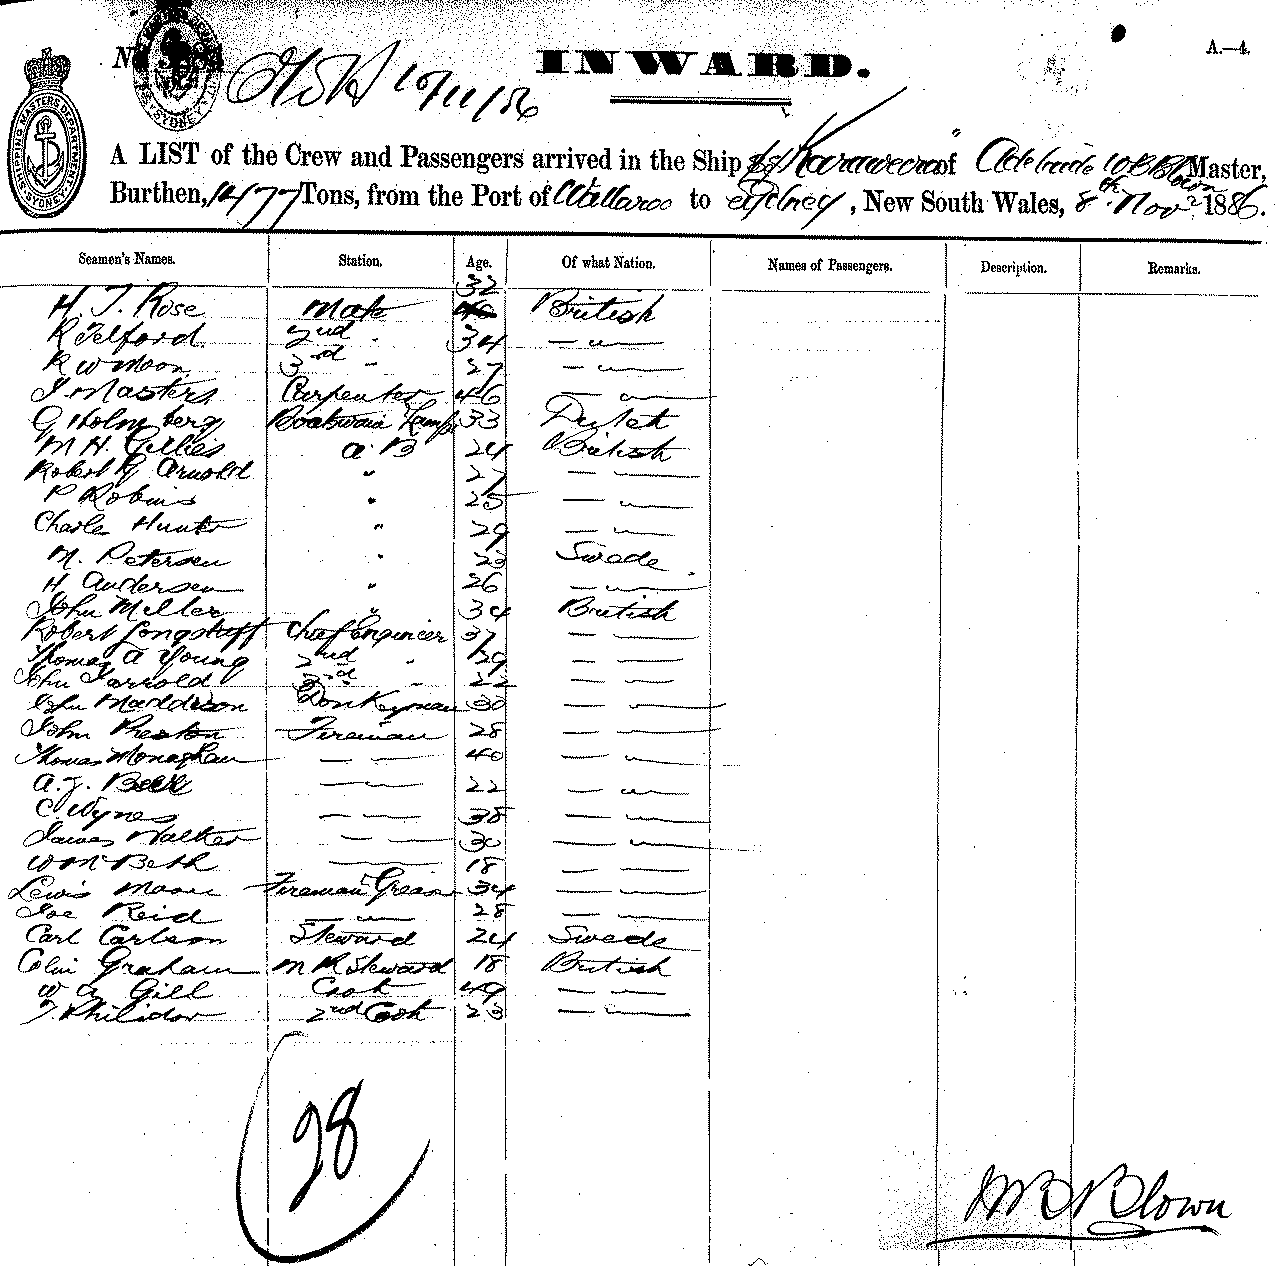 INWARD.
A.—4.
10/11/86
A LIST of the Crew and Passengers arrived in the Ship ss Karaweera of Adelaide W B Blown Master,
Burthen, 1477 Tons, from the Port of Wallaroo to Sydney, New South Wales, 8th Nov 1886.
Seamen's Names. Station. Age. Of what Nation. Names of Passengers. Description. Remarks.
H. J. Rose Mate 32 British
R Telford 2nd " 34 — " —
R W Moon 3rd " 27 — " —
J. Masters Carpenter 46 — " —
G Holmberg Boatswain Lamps 33 Dutch
M H. Gillies A. B 24 British
Robert G Arnold " 27 — —
P Robins " 25 — —
Charles Hunter " 29 — —
M. Petersen " 23 Swede
H Andersen " 26 — —
John Miller " 34 British
Robert Longstaff Chief Engineer 37 — —
Thomas A Young 2nd " 29 — —
John Jarrold 3rd " 22 — —
John Maddison Donkeyman 30 — —
John Preston Fireman 28 — —
Thomas Monaghan — — 40 — —
A. J. Bell — — 22 — " —
C. Wynes — — 38 — —
James Walker — — 30 — —
W McBeth — 18 — —
Lewis Moore Fireman Greaser 34 — —
Joe Reid — " — 28 — —
Carl Carlson Steward 24 Swede
Colin Graham M R Steward 18 British
W G Gill Cook 49 — —
J. Philidor 2nd Cook 23 — —
28
W B Blown